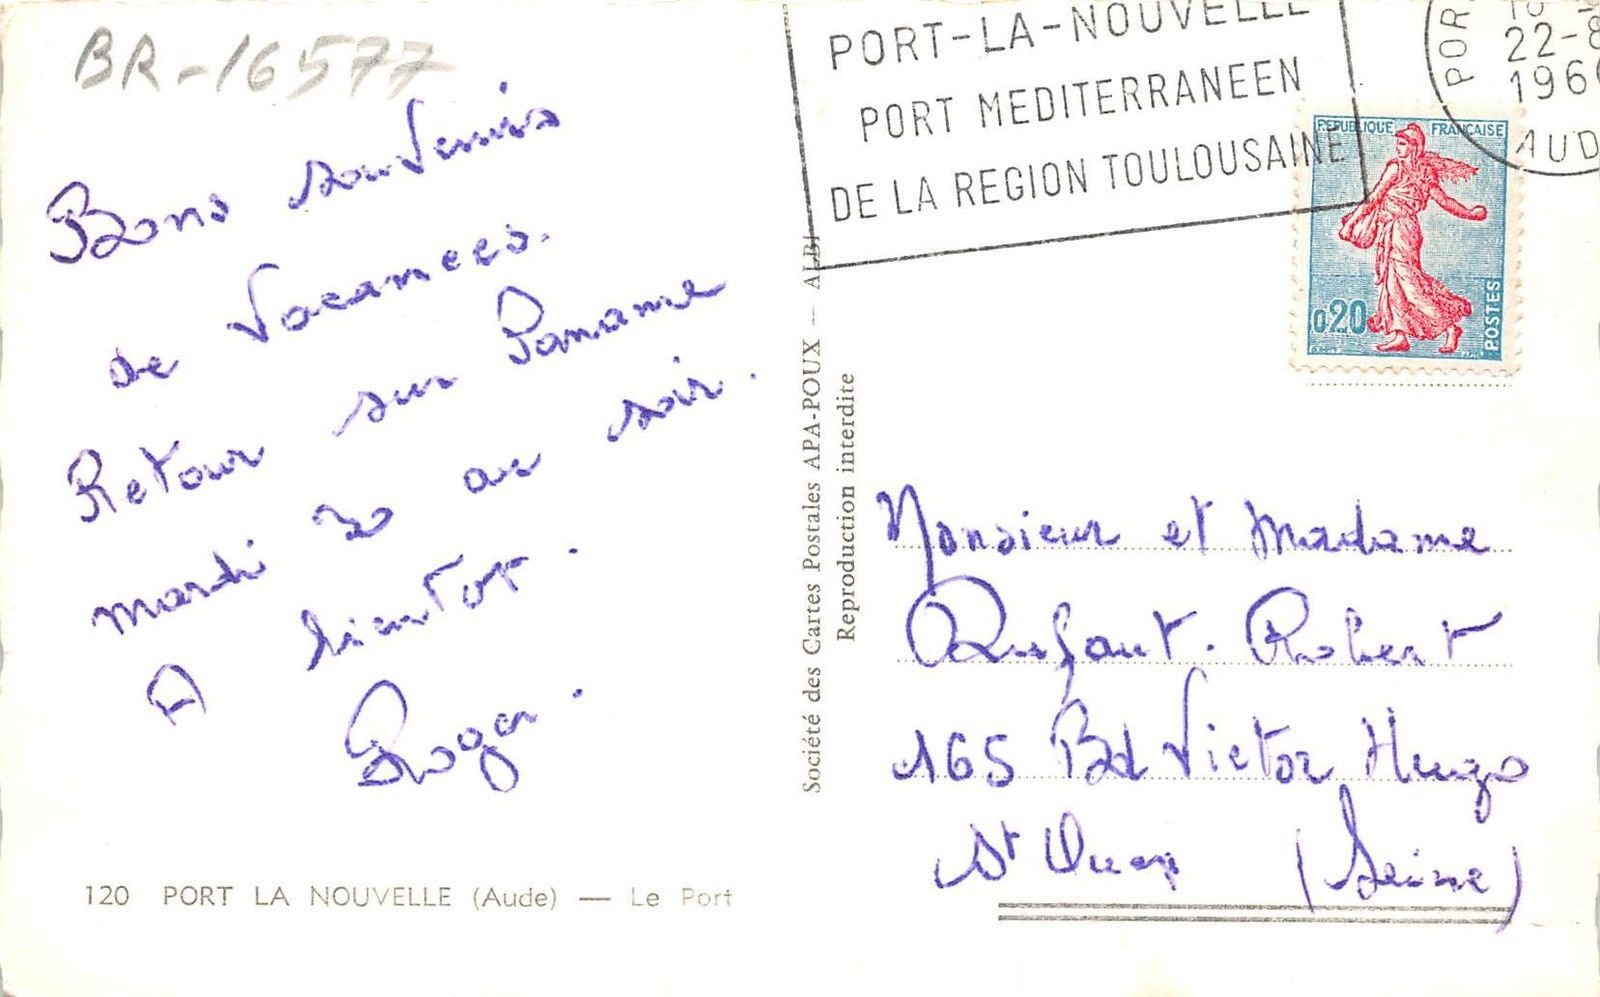 BR-16577
Bons souvenirs
de vacances.
Retour sur Paname
mardi 30 au soir.
A bientot.
Roger.
120 PORT LA NOUVELLE (Aude) — Le Port
Société des Cartes Postales APA-POUX — ALBI
Reproduction interdite
PORT-LA-NOUVELLE
PORT MEDITERRANEEN
DE LA REGION TOULOUSAINE
POR
22-8
196
AUD
REPUBLIQUE FRANÇAISE
0,20
POSTES
Monsieur et Madame
Rufaut. Robert
165 Bd Victor Hugo
St Ouen (Seine)